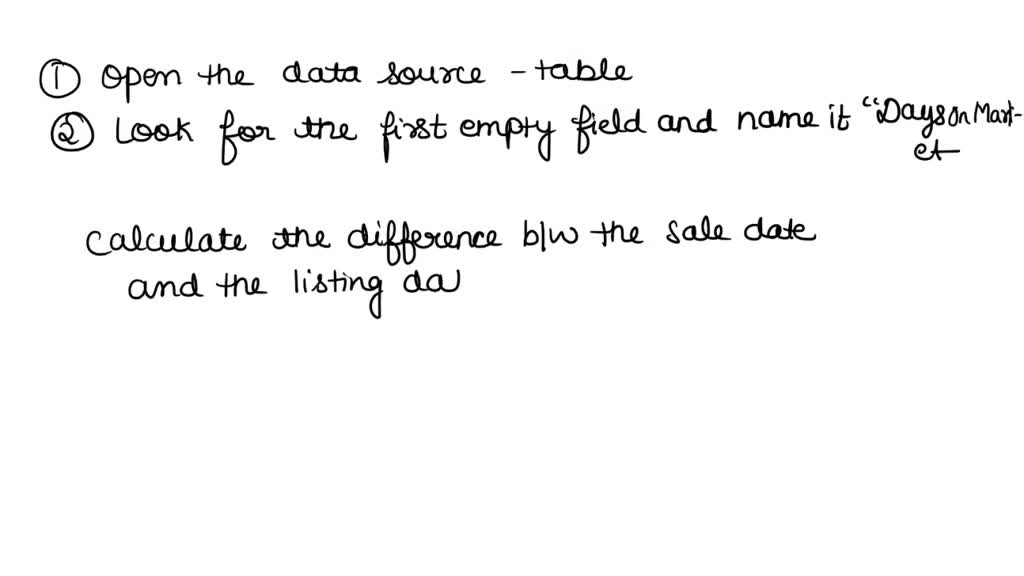 ① open the data source - table
② Look for the first empty field and name it "Days on Mark-
et
calculate the difference b/w the sale date
and the listing da